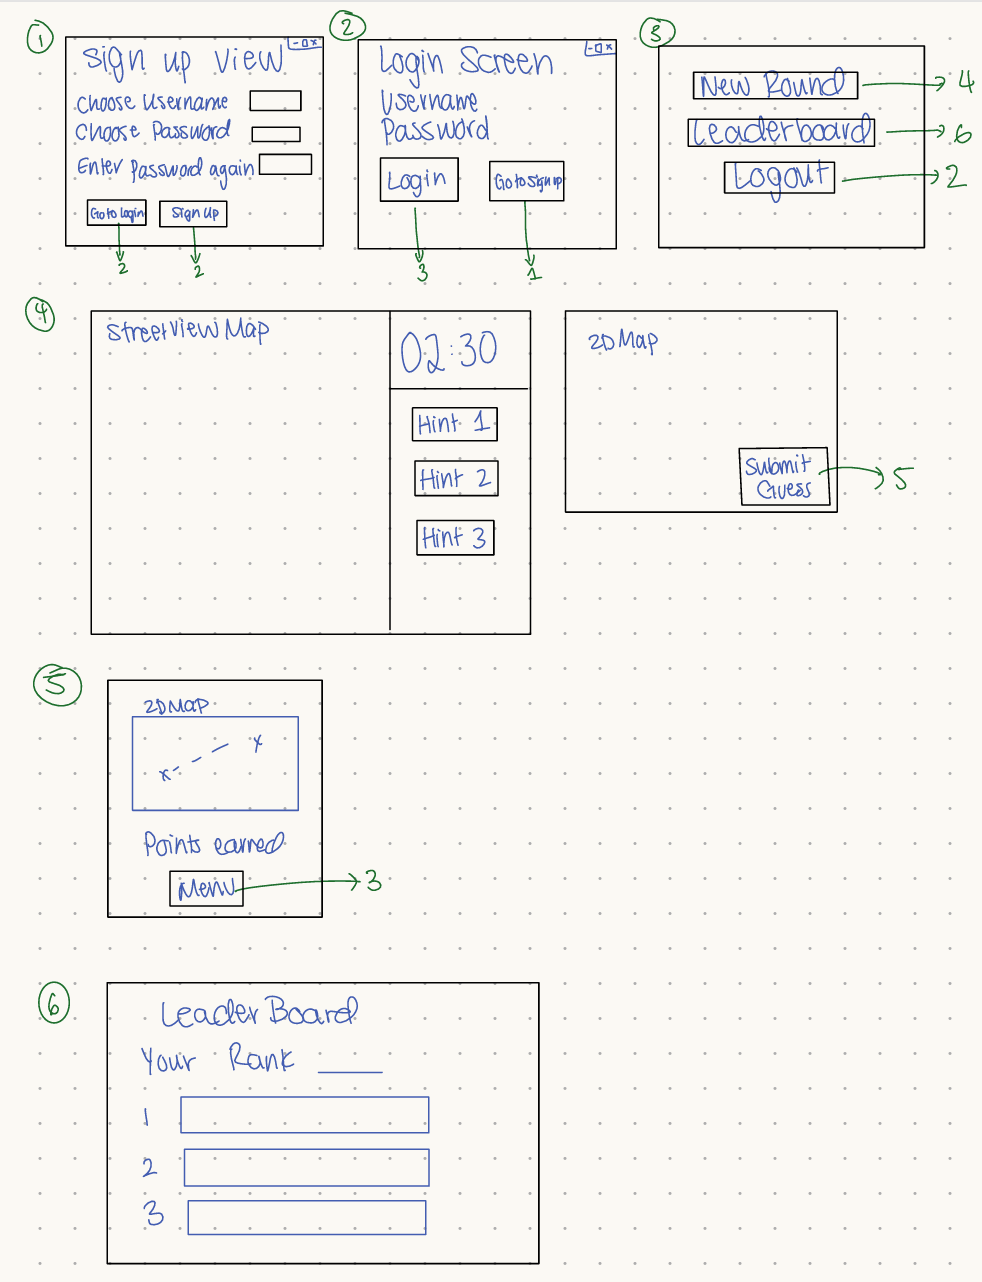 1
Sign up view
- □ x
Choose Username
Choose Password
Enter Password again
Go to Login
Sign Up
2
2
2
Login Screen
- □ x
Username
Password
Login
Go to Sign up
3
1
3
New Round
4
Leaderboard
6
Logout
2
4
Street View Map
02:30
Hint 1
Hint 2
Hint 3
2D Map
Submit
Guess
5
5
2D Map
x
x
Points earned
Menu
3
6
Leader Board
Your Rank
1
2
3